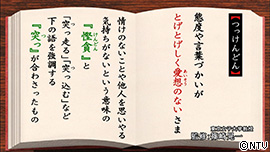 【つっけんどん】
態度や言葉づかいが
とげとげしく愛想のないさま
東京女子大学教授
監修・篠崎晃一
情けのないことや他人を思いやる
気持ちがないという意味の
『慳貪』と
「突っ走る」「突っ込む」など
下の語を強調する
『突っ』が合わさったもの
©NTV